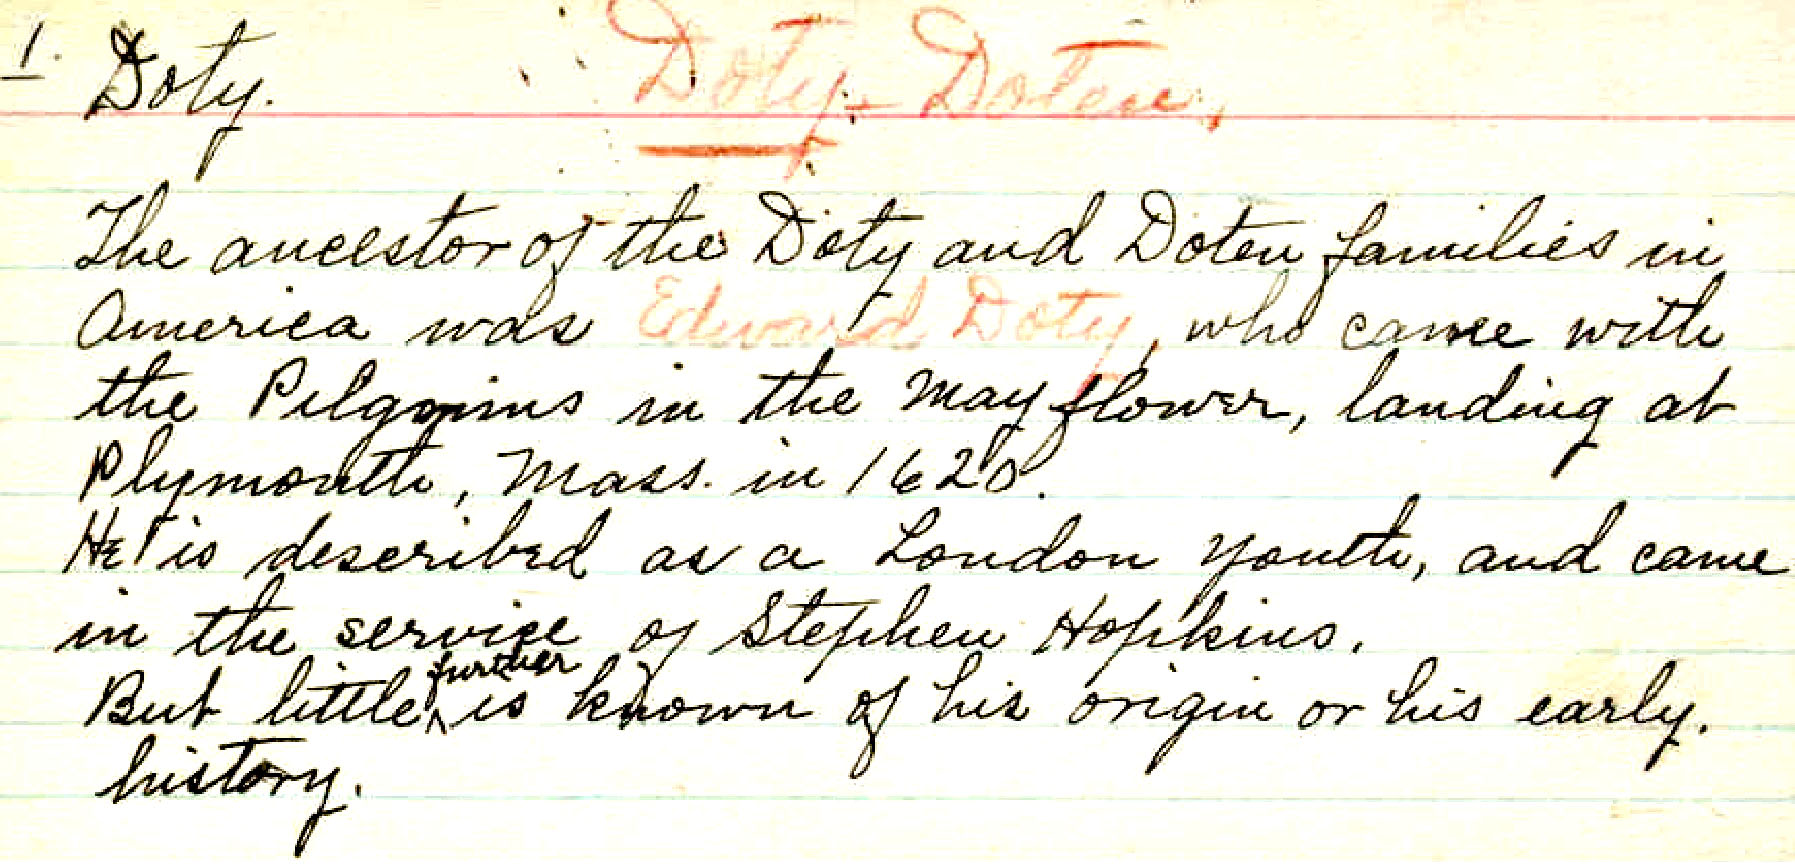 1. Doty. Doty - Doten.
The ancestor of the Doty and Doten families in
America was Edward Doty, who came with
the Pilgrims in the Mayflower, landing at
Plymouth, Mass. in 1620.
He is described as a London youth, and came
in the service of Stephen Hopkins.
But little further is known of his origin or his early.
history.